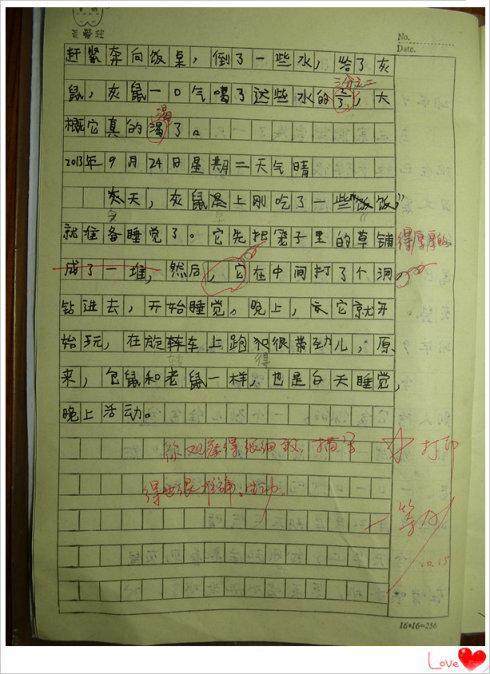 No.
Date.
赶紧奔向饭桌，倒了一些水，给了灰
三分之二
鼠，灰鼠一口气喝了这些水的⅔，大
渴
概它真的渴了。
2013年9月24日星期二天气晴
今天，灰鼠早上刚吃了一些"饭饭"
就准备睡觉了。它先把笼子里的草铺 得厚厚的
成了一堆，然后，它在中间打了个洞
钻进去，开始睡觉。晚上，它就开
始玩，在旋转车上跑得很带劲儿，原
来，仓鼠和老鼠一样，也是白天睡觉，
晚上活动。
你观察得很细致，描写 打印
得也很准确、生动。
一等
10.15
16*16=256
Love